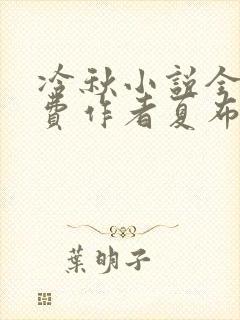 冷秋小說全
費作者夏布
葉明子